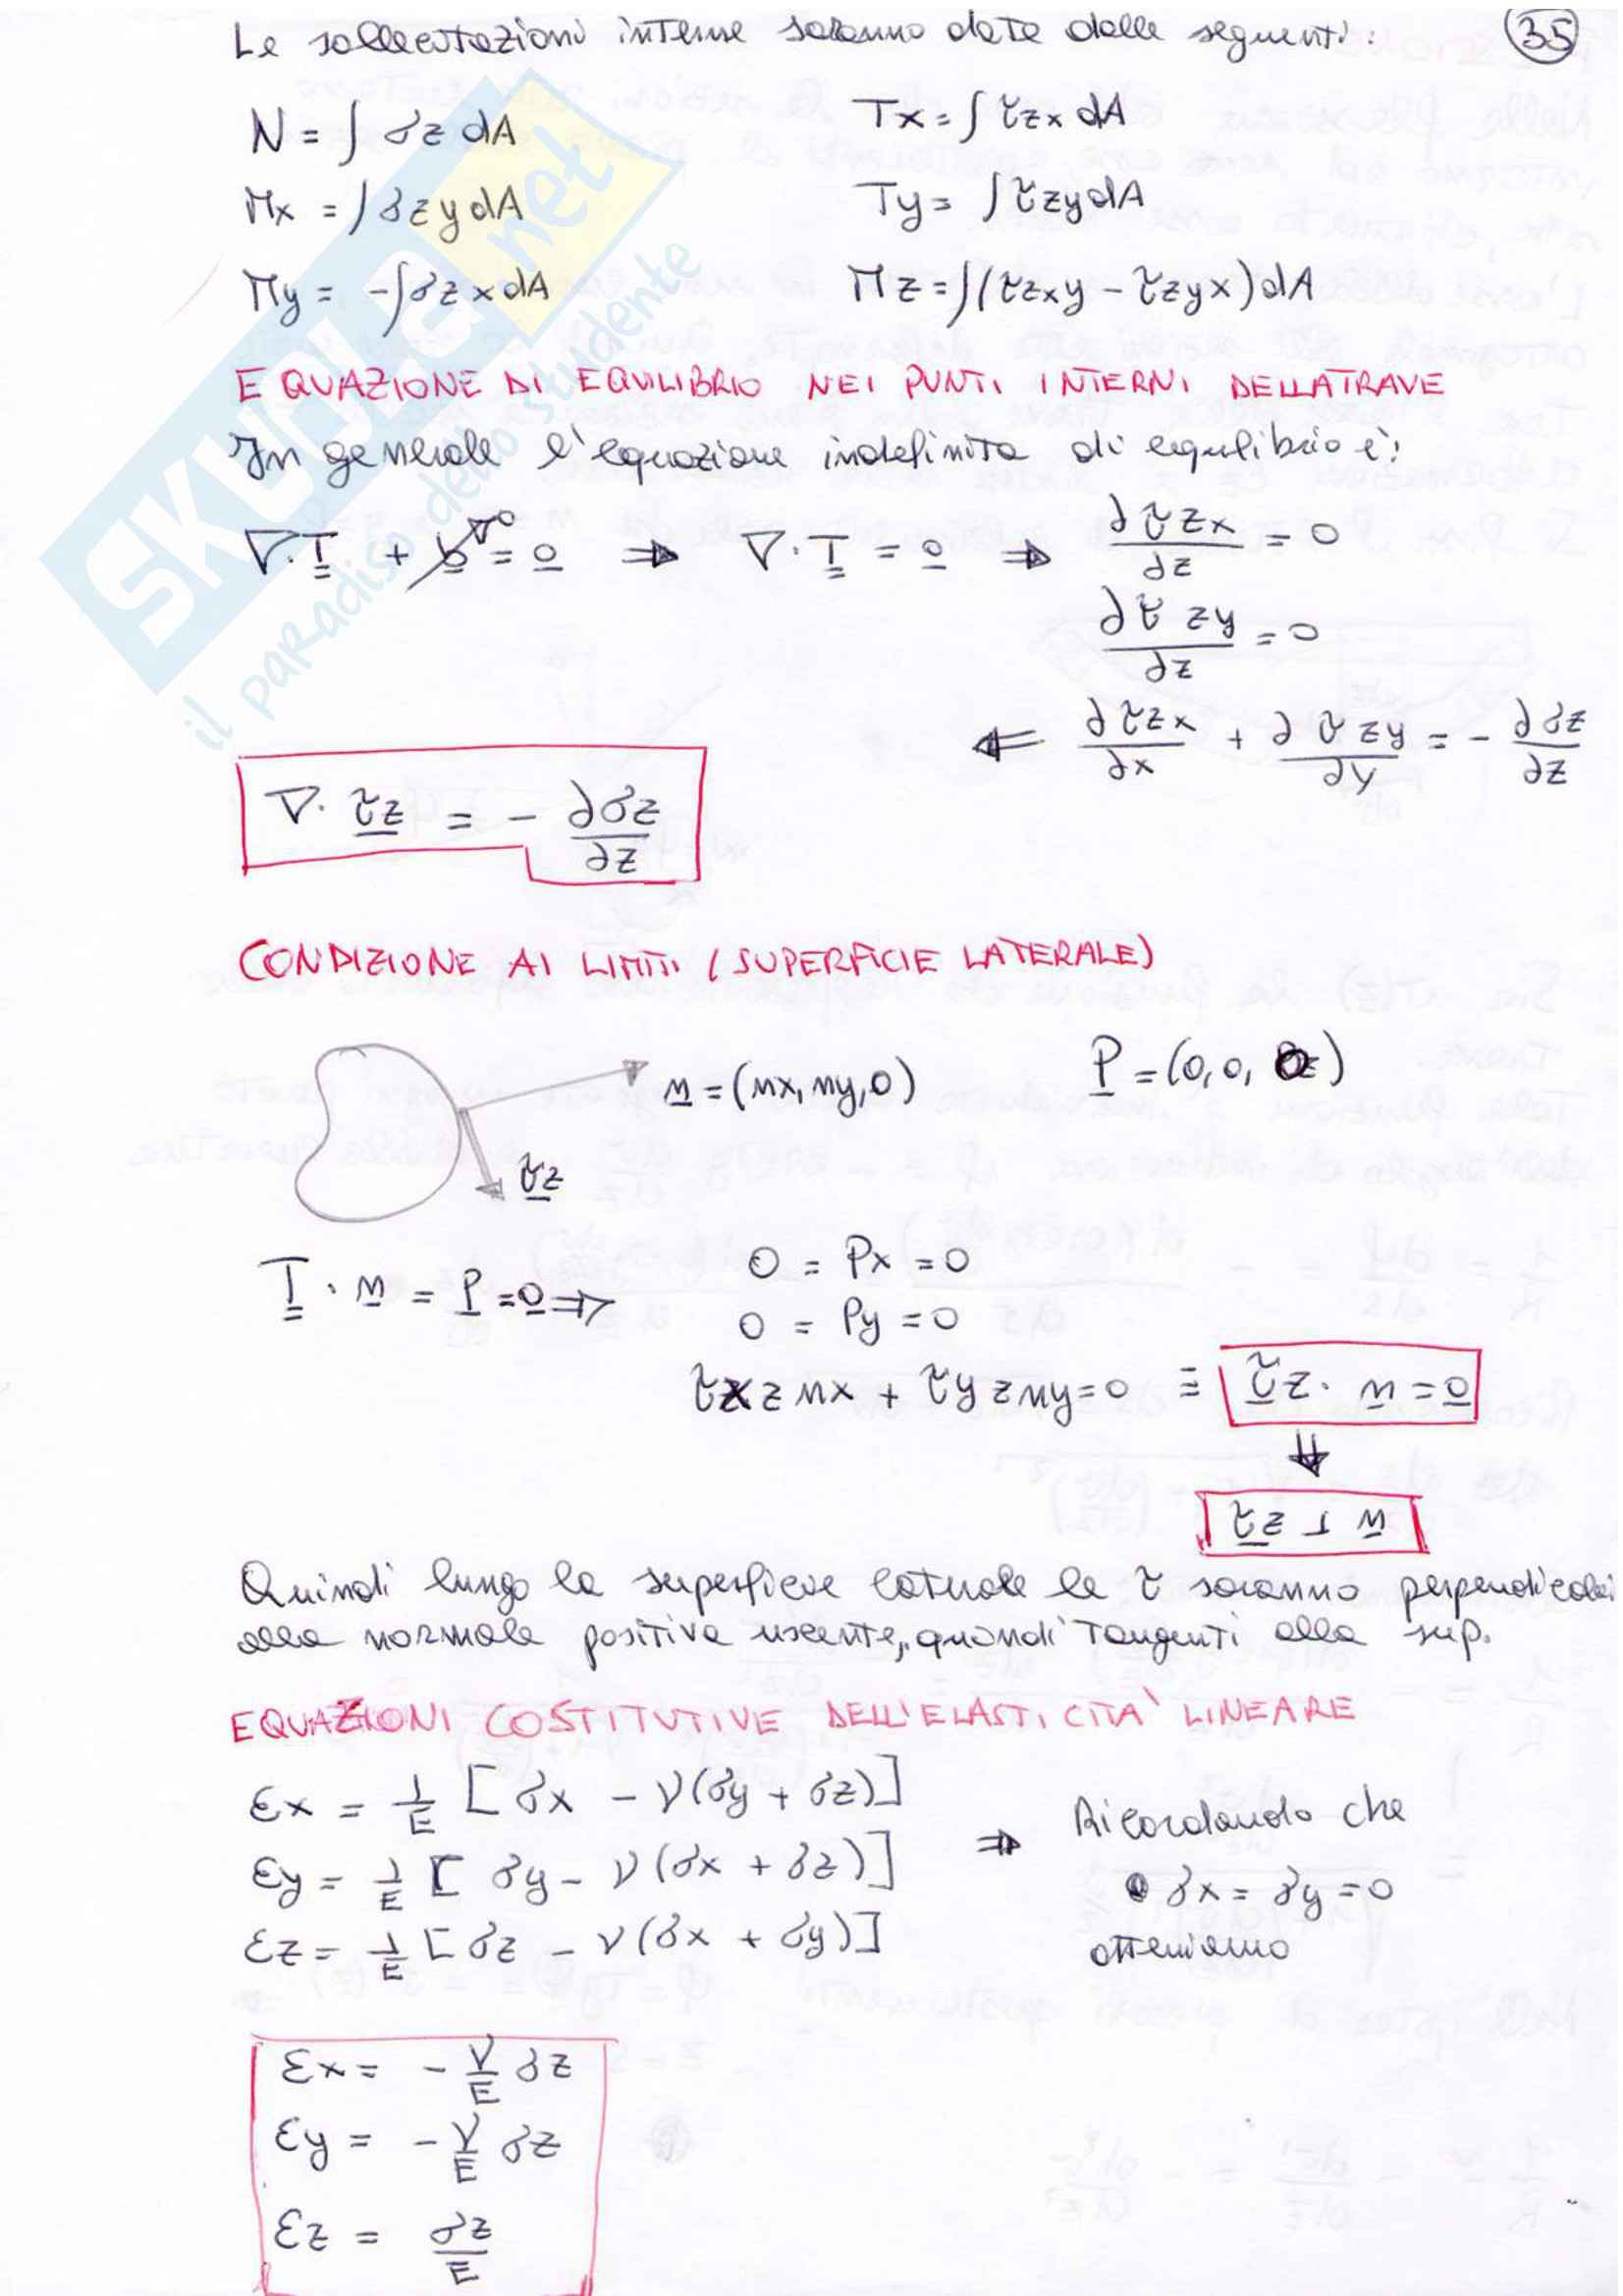 Le sollecitazioni interne saranno date dalle seguenti: 35
N = ∫ σz dA Tx = ∫ τzx dA
Mx = ∫ σz y dA Ty = ∫ τzy dA
My = -∫ σz x dA Mz = ∫(τzx y - τzy x) dA
EQUAZIONE DI EQUILIBRIO NEI PUNTI INTERNI DELLA TRAVE
In generale l'equazione indefinita di equlibrio è:
∇·T + b = 0 ⇒ ∇·T = 0 ⇒ ∂τzx/∂z = 0
∂τzy/∂z = 0
⇐ ∂τzx/∂x + ∂τzy/∂y = - ∂σz/∂z
∇·τz = - ∂σz/∂z
CONDIZIONE AI LIMITI (SUPERFICIE LATERALE)
n = (nx, ny, 0) P = (0, 0, 0)
τz
T · n = P = 0 ⇒ 0 = Px = 0
0 = Py = 0
τxz nx + τyz ny = 0 ≡ τz · n = 0
⇓
τz ⊥ n
Quindi lungo la superficie laterale le τ saranno perpendicolari
alla normale positiva uscente, quindi tangenti alla sup.
EQUAZIONI COSTITUTIVE DELL'ELASTICITA' LINEARE
εx = 1/E [σx - ν(σy + σz)]
εy = 1/E [σy - ν(σx + σz)]
εz = 1/E [σz - ν(σx + σy)]
⇒ Ricordando che
σx = σy = 0
otteniamo
εx = - ν/E σz
εy = - ν/E σz
εz = σz/E
SKUOLA.net
il paradiso dello studente